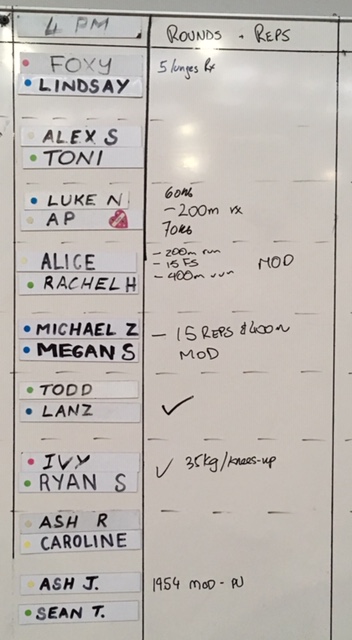 4 PM
ROUNDS + REPS
FOXY
5 lunges Rx
LINDSAY
ALEX S
TONI
LUKE N
60kg
AP
- 200m rx
70kg
ALICE
- 200m run
- 15 FS
MOD
RACHEL H
- 400m run
MICHAEL Z
- 15 REPS & 400m
MEGAN S
MOD
TODD
LANZ ✓
IVY
✓ 35kg/knees-up
RYAN S
ASH R
CAROLINE
ASH J.
1954 MOD - PU
SEAN T.